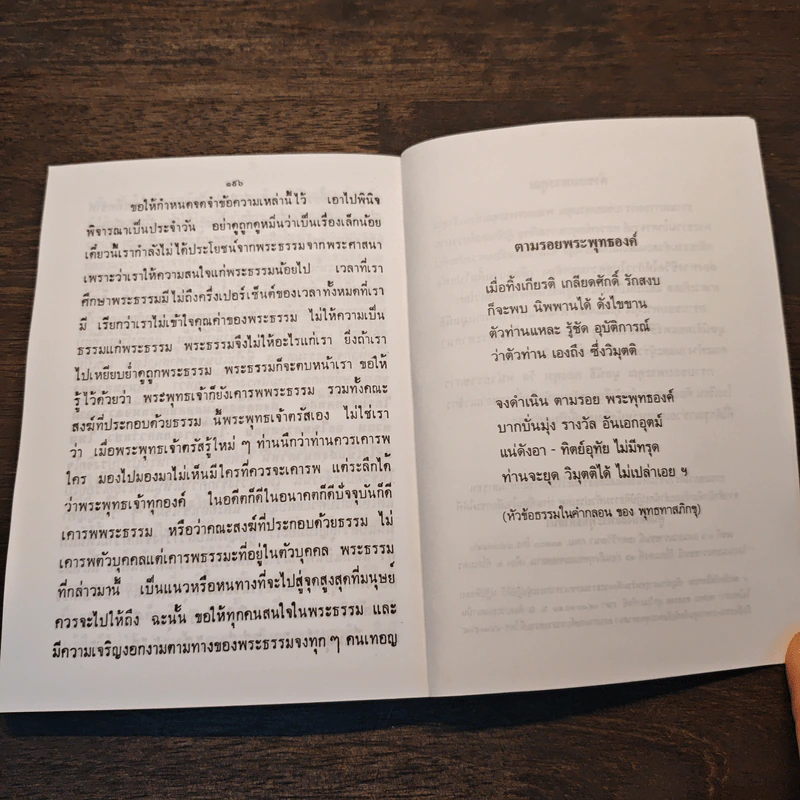 ๑๙๖
ขอให้กำหนดจดจำข้อความเหล่านี้ไว้ เอาไปพินิจ
พิจารณาเป็นประจำวัน อย่าดูถูกดูหมิ่นว่าเป็นเรื่องเล็กน้อย
เดี๋ยวนี้เรากำลังไม่ได้ประโยชน์จากพระธรรมจากพระศาสนา
เพราะว่าเราให้ความสนใจแก่พระธรรมน้อยไป เวลาที่เรา
ศึกษาพระธรรมมีไม่ถึงครึ่งเปอร์เซ็นต์ของเวลาทั้งหมดที่เรา
มี เรียกว่าเราไม่เข้าใจคุณค่าของพระธรรม ไม่ให้ความเป็น
ธรรมแก่พระธรรม พระธรรมจึงไม่ให้อะไรแก่เรา ยิ่งถ้าเรา
ไปเหยียบย่ำดูถูกพระธรรม พระธรรมก็จะตบหน้าเรา ขอให้
รู้ไว้ด้วยว่า พระพุทธเจ้าก็ยังเคารพพระธรรม รวมทั้งคณะ
สงฆ์ที่ประกอบด้วยธรรม นี้พระพุทธเจ้าตรัสเอง ไม่ใช่เรา
ว่า เมื่อพระพุทธเจ้าตรัสรู้ใหม่ ๆ ท่านนึกว่าท่านควรเคารพ
ใคร มองไปมองมาไม่เห็นมีใครที่ควรจะเคารพ แต่ระลึกได้
ว่าพระพุทธเจ้าทุกองค์ ในอดีตก็ดีในอนาคตก็ดีปัจจุบันก็ดี
เคารพพระธรรม หรือว่าคณะสงฆ์ที่ประกอบด้วยธรรม ไม่
เคารพตัวบุคคลแต่เคารพธรรมะที่อยู่ในตัวบุคคล พระธรรม
ที่กล่าวมานี้ เป็นแนวหรือหนทางที่จะไปสู่จุดสูงสุดที่มนุษย์
ควรจะไปให้ถึง ฉะนั้น ขอให้ทุกคนสนใจในพระธรรม และ
มีความเจริญงอกงามตามทางของพระธรรมจงทุก ๆ คนเทอญ
ตามรอยพระพุทธองค์
เมื่อทิ้งเกียรติ เกลียดศักดิ์ รักสงบ
ก็จะพบ นิพพานได้ ดั่งไขขาน
ตัวท่านแหละ รู้ชัด อุบัติการณ์
ว่าตัวท่าน เองถึง ซึ่งวิมุตติ
จงดำเนิน ตามรอย พระพุทธองค์
บากบั่นมุ่ง รางวัล อันเอกอุตม์
แน่ดังอา - ทิตย์อุทัย ไม่มีทรุด
ท่านจะยุด วิมุตติได้ ไม่เปล่าเอย ฯ
(หัวข้อธรรมในคำกลอน ของ พุทธทาสภิกขุ)